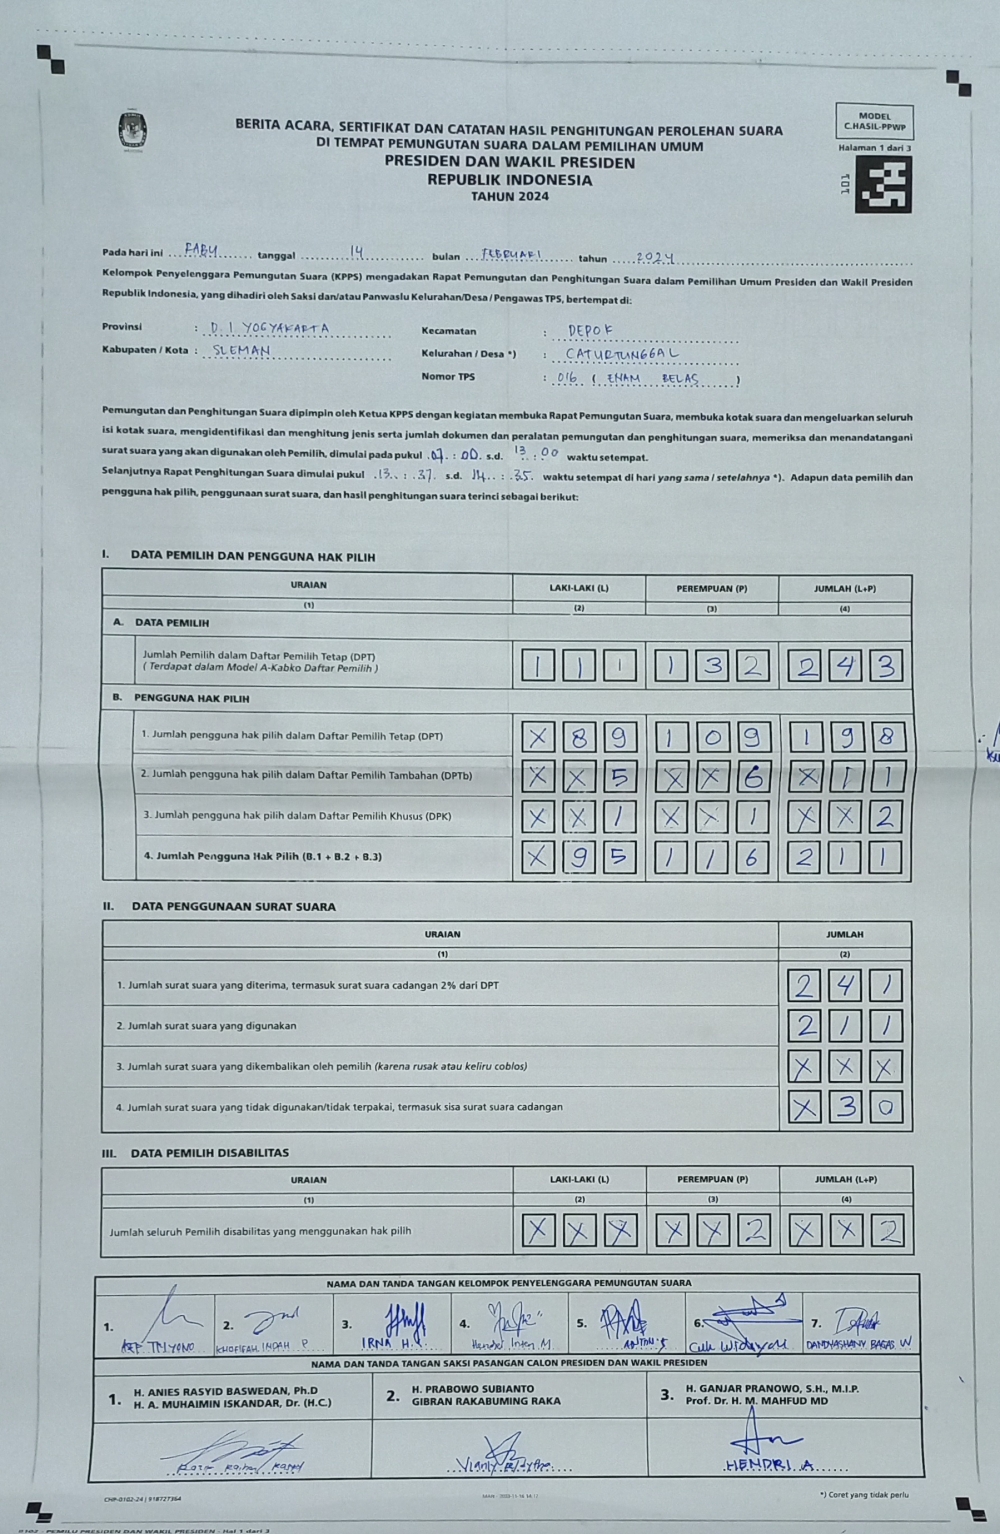 MODEL
C.HASIL-PPWP
BERITA ACARA, SERTIFIKAT DAN CATATAN HASIL PENGHITUNGAN PEROLEHAN SUARA
DI TEMPAT PEMUNGUTAN SUARA DALAM PEMILIHAN UMUM
PRESIDEN DAN WAKIL PRESIDEN
REPUBLIK INDONESIA
TAHUN 2024
Halaman 1 dari 3
101
Pada hari ini RABU tanggal 14 bulan FEBRUARI tahun 2024
Kelompok Penyelenggara Pemungutan Suara (KPPS) mengadakan Rapat Pemungutan dan Penghitungan Suara dalam Pemilihan Umum Presiden dan Wakil Presiden
Republik Indonesia, yang dihadiri oleh Saksi dan/atau Panwaslu Kelurahan/Desa / Pengawas TPS, bertempat di:
Provinsi : D. I. YOGYAKARTA Kecamatan : DEPOK
Kabupaten / Kota : SLEMAN Kelurahan / Desa *) : CATURTUNGGAL
Nomor TPS : 016 ( ENAM BELAS )
Pemungutan dan Penghitungan Suara dipimpin oleh Ketua KPPS dengan kegiatan membuka Rapat Pemungutan Suara, membuka kotak suara dan mengeluarkan seluruh
isi kotak suara, mengidentifikasi dan menghitung jenis serta jumlah dokumen dan peralatan pemungutan dan penghitungan suara, memeriksa dan menandatangani
surat suara yang akan digunakan oleh Pemilih, dimulai pada pukul 07 : 00 s.d. 13 : 00 waktu setempat.
Selanjutnya Rapat Penghitungan Suara dimulai pukul 13 : 37 s.d. 14 : 35 waktu setempat di hari yang sama / setelahnya *). Adapun data pemilih dan
pengguna hak pilih, penggunaan surat suara, dan hasil penghitungan suara terinci sebagai berikut:
I. DATA PEMILIH DAN PENGGUNA HAK PILIH
URAIAN LAKI-LAKI (L) PEREMPUAN (P) JUMLAH (L+P)
(1) (2) (3) (4)
A. DATA PEMILIH
Jumlah Pemilih dalam Daftar Pemilih Tetap (DPT)
( Terdapat dalam Model A-Kabko Daftar Pemilih ) 1 1 1 1 3 2 2 4 3
B. PENGGUNA HAK PILIH
1. Jumlah pengguna hak pilih dalam Daftar Pemilih Tetap (DPT) X 8 9 1 0 9 1 9 8
2. Jumlah pengguna hak pilih dalam Daftar Pemilih Tambahan (DPTb) X X 5 X X 6 X 1 1
3. Jumlah pengguna hak pilih dalam Daftar Pemilih Khusus (DPK) X X 1 X X 1 X X 2
4. Jumlah Pengguna Hak Pilih (B.1 + B.2 + B.3) X 9 5 1 1 6 2 1 1
II. DATA PENGGUNAAN SURAT SUARA
URAIAN JUMLAH
(1) (2)
1. Jumlah surat suara yang diterima, termasuk surat suara cadangan 2% dari DPT 2 4 1
2. Jumlah surat suara yang digunakan 2 1 1
3. Jumlah surat suara yang dikembalikan oleh pemilih (karena rusak atau keliru coblos) X X X
4. Jumlah surat suara yang tidak digunakan/tidak terpakai, termasuk sisa surat suara cadangan X 3 0
III. DATA PEMILIH DISABILITAS
URAIAN LAKI-LAKI (L) PEREMPUAN (P) JUMLAH (L+P)
(1) (2) (3) (4)
Jumlah seluruh Pemilih disabilitas yang menggunakan hak pilih X X X X X 2 X X 2
NAMA DAN TANDA TANGAN KELOMPOK PENYELENGGARA PEMUNGUTAN SUARA
1. 2. 3. 4. 5. 6. 7.
TRIYONO KHOFIFAH INDAH P IRNA H. Intan M DANDYASHANY BAGAS W
NAMA DAN TANDA TANGAN SAKSI PASANGAN CALON PRESIDEN DAN WAKIL PRESIDEN
1. H. ANIES RASYID BASWEDAN, Ph.D
H. A. MUHAIMIN ISKANDAR, Dr. (H.C.)
2. H. PRABOWO SUBIANTO
GIBRAN RAKABUMING RAKA
3. H. GANJAR PRANOWO, S.H., M.I.P.
Prof. Dr. H. M. MAHFUD MD
HENDRI A
CHP-0102-24 | 918727364
*) Coret yang tidak perlu
0102 - PEMILU PRESIDEN DAN WAKIL PRESIDEN - Hal 1 dari 3